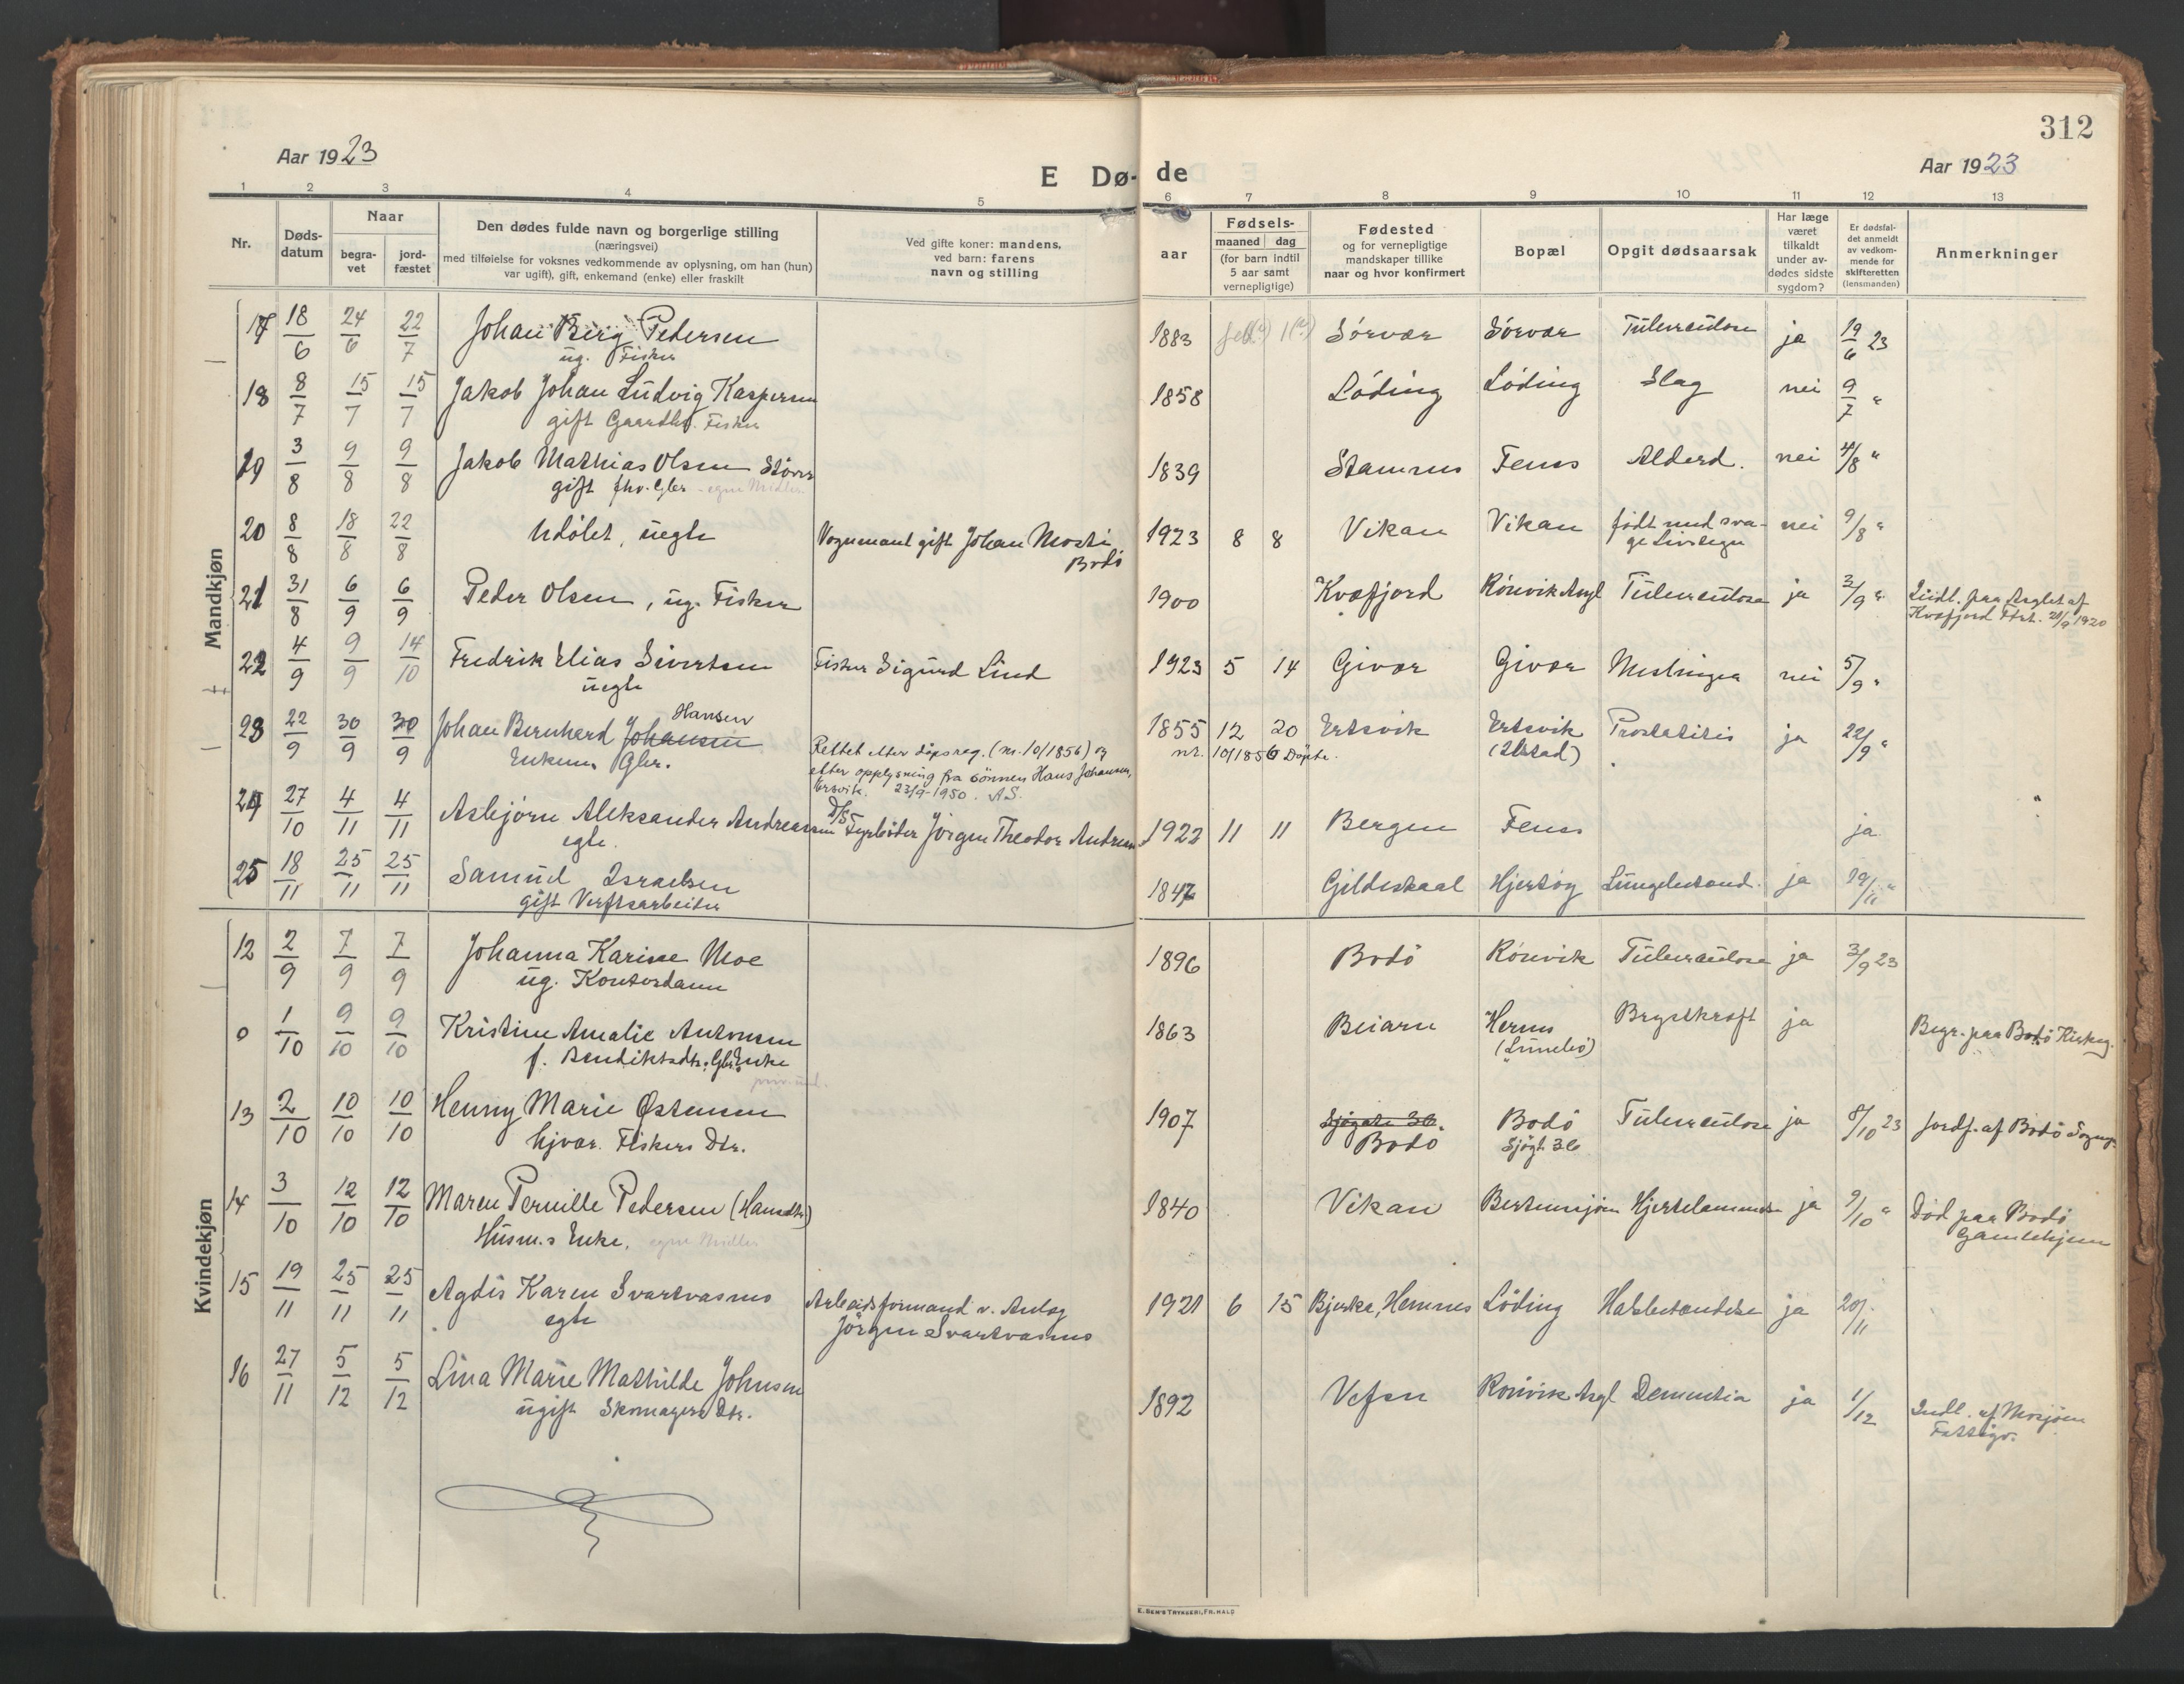 312
Aar 1923
E Dø- de
Aar 1923
1 2 3 4 5 6 7 8 9 10 11 12 13
Nr.
Døds-
datum
Naar
begra-
vet
jord-
fæstet
Den dødes fulde navn og borgerlige stilling
(næringsvei)
med tilføielse for voksnes vedkommende av oplysning, om han (hun)
var ugift), gift, enkemand (enke) eller fraskilt
Ved gifte koner: mandens,
ved barn: farens
navn og stilling
aar
Fødsels-
maaned dag
(for barn indtil
5 aar samt
vernepligtige)
Fødested
og for vernepligtige
mandskaper tillike
naar og hvor konfirmert
Bopæl
Opgit dødsaarsak
Har læge
været
tilkaldt
under av-
dødes sidste
sygdom?
Er dødsfal-
det anmeldt
av vedkom-
mende for
skifteretten
(lensmanden)
Anmerkninger
Mandkjøn
17 18/6 24/6 22/7 Johan Berg Pedersen 1883 feb(?) 1(?) Sörvær Sörvær Tuberculose ja 19/6 23
ug. Fisker
18 8/7 15/7 15/7 Jakob Johan Ludvig Kaspersen 1858 Löding Löding Slag nei 9/7 "
gift Gaardbr. Fisker
19 3/8 9/8 9/8 Jakob Mathias Olsen Större 1839 Stamnes Fenes Alderd. nei 4/8 "
gift fhv. Gbr. - egne Midler
20 8/8 18/8 22/8 Udöbt, uegte Vognmand gift Johan Mosti 1923 8 8 Vikan Vikan født med sva- nei 9/8 "
Bodö ge Livstegn
21 31/8 6/9 6/9 Peder Olsen, ug. Fisker 1900 Kvæfjord Rönvik Asyl Tuberculose ja 3/9 " Indl. paa Asylet af
Kvæfjord Ftst. 21/9 1920
22 4/9 9/9 14/10 Fredrik Elias Sivertsen Fisker Sigurd Lind 1923 5 14 Givær Givær Meslinger nei 5/9 "
uegte
Hansen
23 22/9 30/9 30/9 Johan Bernhard Johansen 1855 12 20 Ertsvik Ertsvik Prostatitis ja 22/9 "
Enkem. Gbr. Rettet etter döpsreg. (nr. 10/1856) og nr. 10/1856 Döpte. (Ulstad)
etter opplysning fra sönnen Hans Johansen,
Ersvik. 23/9-1950. A.S.
24 27/10 4/11 4/11 Asbjörn Aleksander Andreassen D/S Fyrböter Jörgen Theodor Andreass. 1922 11 11 Bergen Fenes ja "
egte.
25 18/11 25/11 25/11 Samuel Israelsen 1847 Gildeskaal Hjertöy Lungebetænd. ja 19/11 "
gift Verftsarbeider
Kvindekjøn
12 2/9 7/9 7/9 Johanna Karine Moe 1896 Bodö Rönvik Tuberculose ja 3/9 23
ug. Kontordame
0 1/10 9/10 9/10 Kristine Amalie Antonsen 1863 Beiarn Hernes Brystkræft ja Begr. paa Bodö Kirkeg.
f. Bendiktsdtr. Gbr. Enke (Lunebö)
13 2/10 10/10 10/10 Henny Marie Østensen 1907 Sjøgate 36. Bodö Tuberculose ja 8/10 23 Jordf. af Bodö Sognep.
hjvær. Fiskers Dtr. Bodö Sjøgt. 36
14 3/10 12/10 12/10 Maren Pernille Pedersen (Hansdtr.) 1840 Vikan Bertensjøen Hjertelammelse ja 9/10 " Död paa Bodö
Husm.s Enke. egne Midler Gamlehjem
15 19/11 25/11 25/11 Agdis Karen Svartvasmo Arbeidsformand v. Anlæg 1921 6 15 Bjerka, Hemnes Löding Halsbetændelse ja 20/11
egte Jörgen Svartvasmo
16 27/11 5/12 5/12 Lina Marie Mathilde Johnsen 1892 Vefsn Rönvik Asyl Dementia ja 1/12 Indl. af Mosjöen
ugift Skomagers Dtr. Fattigv.
E. SEM'S TRYKKERI, FR.HALD